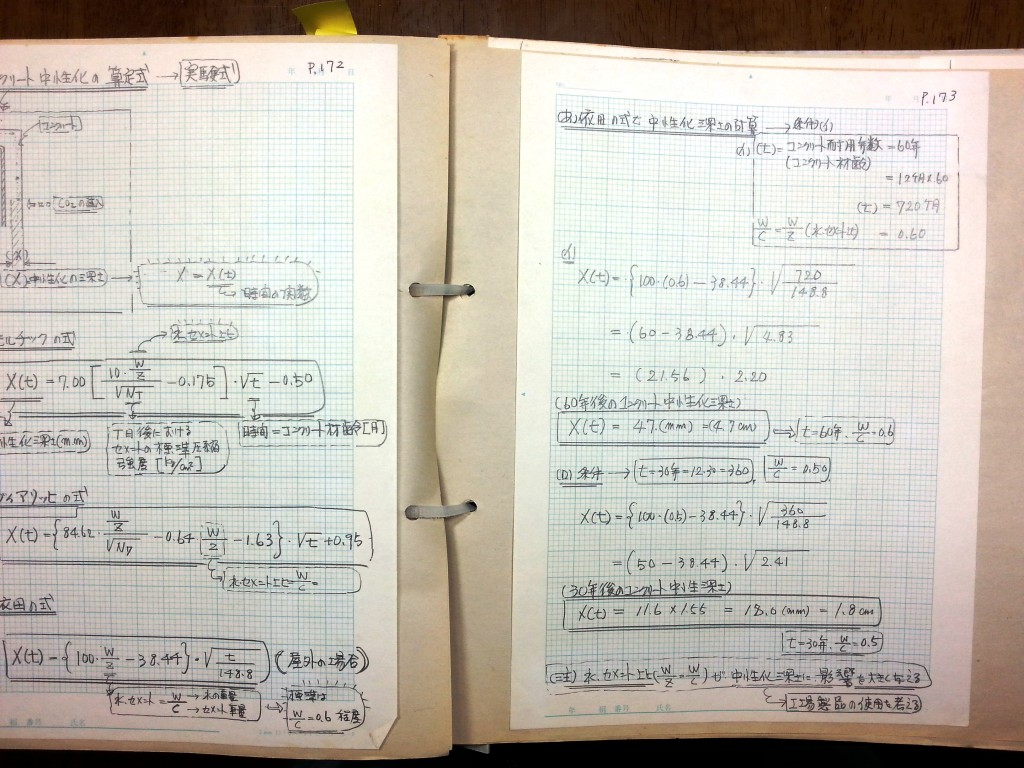 P.172
クリート中性化の算定式 → 実験式
コンクリート
CO2の浸入
(X) 中性化の深さ
X = X(t)
時間の関数
水・セメント比
X(t) = 7.00 [ 10・W/Z / √N7 − 0.175 ]・√t − 0.50
性化深さ(mm)
7日後における
セメントの標準圧縮
強度 [kg/cm²]
時間 = コンクリート材齢 [月]
の式
X(t) = { 84.62・W/Z / √N7 − 0.64 W/Z − 1.63 }・√t + 0.95
水・セメント比 = W/C =
依田の式
X(t) − { 100・W/Z − 38.44 }・√t/148.8 (屋外の場合)
水・セメント = W/C → 水の重量
→ セメント重量
標準は
W/C = 0.6 程度
P.173
(あ) 依田の式で中性化深さの計算 → 条件(イ)
(イ) (t) = コンクリート耐用年数 = 60年
(コンクリート材齢)
= 12ケ月×60
(t) = 720ケ月
W/C = W/Z (水・セメント比) = 0.60
(イ)
X(t) = {100・(0.6) − 38.44}・√720/148.8
= (60 − 38.44)・√4.83
= (21.56)・2.20
(60年後のコンクリート中性化深さ)
X(t) = 47(mm) = (4.7cm) ⇒ t=60年・W/C=0.6
(ロ) 条件 → t=30年=12・30=360, W/C=0.50
X(t) = {100・(0.5) − 38.44}・√360/148.8
= (50 − 38.44)・√2.41
(30年後のコンクリート中性深さ)
X(t) = 11.6 × 1.55 = 18.0(mm) = 1.8cm
t=30年・W/C=0.5
(注) 水・セメント比(W/Z = W/C)が中性化深さに影響を大きく与える
工場製品の使用を考える